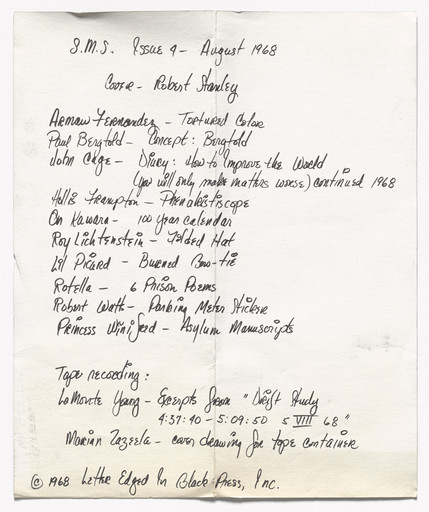 S.M.S. Issue 4 - August 1968
Cover - Robert Stanley
Arman Fernandez - Tortured Color
Paul Bergtold - Concept: Bergtold
John Cage - Diary: How to Improve the World
(you will only make matters worse) continued 1968
Hollis Frampton - Phenakistiscope
On Kawara - 100 Year calendar
Roy Lichtenstein - Folded Hat
Lil Picard - Burned Bow-tie
Rotella - 6 Prison Poems
Robert Watts - Parking Meter Sticker
Princess Winifred - Asylum Manuscripts
Tape recording:
LaMonte Young - Excerpts from "Drift Study
4:37:40 - 5:09:50 5 VIII 68"
Marian Zazeela - cover drawing for tape container
© 1968 Letter Edged In Black Press, Inc.